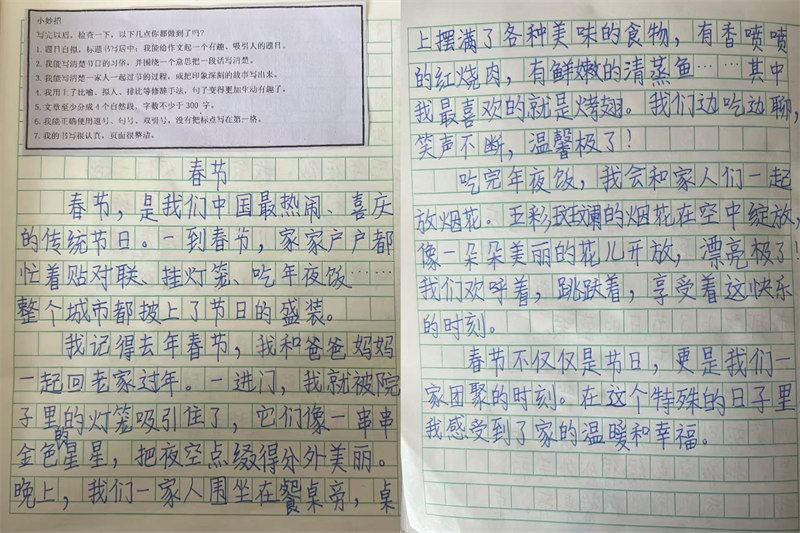 小妙招
写完以后，检查一下，以下几点你都做到了吗？
1.题目自拟，标题书写居中；我能给作文起一个有趣、吸引人的题目。
2.我能写清楚节日的习俗，并围绕一个意思把一段话写清楚。
3.我能写清楚一家人一起过节的过程，或把印象深刻的故事写出来。
4.我用上了比喻、拟人、排比等修辞手法，句子变得更加生动有趣了。
5.文章至少分成4个自然段，字数不少于300字。
6.我能正确使用逗号、句号、双引号，没有把标点写在第一格。
7.我的书写很认真，页面很整洁。
春节
春节，是我们中国最热闹、喜庆
的传统节日。一到春节，家家户户都
忙着贴对联、挂灯笼、吃年夜饭……
整个城市都披上了节日的盛装。
我记得去年春节，我和爸爸妈妈
一起回老家过年。一进门，我就被院
子里的灯笼吸引住了，它们像一串串
金色的星星，把夜空点缀得分外美丽。
晚上，我们一家人围坐在餐桌旁，桌
上摆满了各种美味的食物，有香喷喷
的红烧肉，有鲜嫩的清蒸鱼……其中
我最喜欢的就是烤翅。我们边吃边聊，
笑声不断，温馨极了！
吃完年夜饭，我会和家人们一起
放烟花。五彩斑斓的烟花在空中绽放，
像一朵朵美丽的花儿开放，漂亮极了！
我们欢呼着，跳跃着，享受着这快乐
的时刻。
春节不仅仅是节日，更是我们一
家团聚的时刻。在这个特殊的日子里
我感受到了家的温暖和幸福。